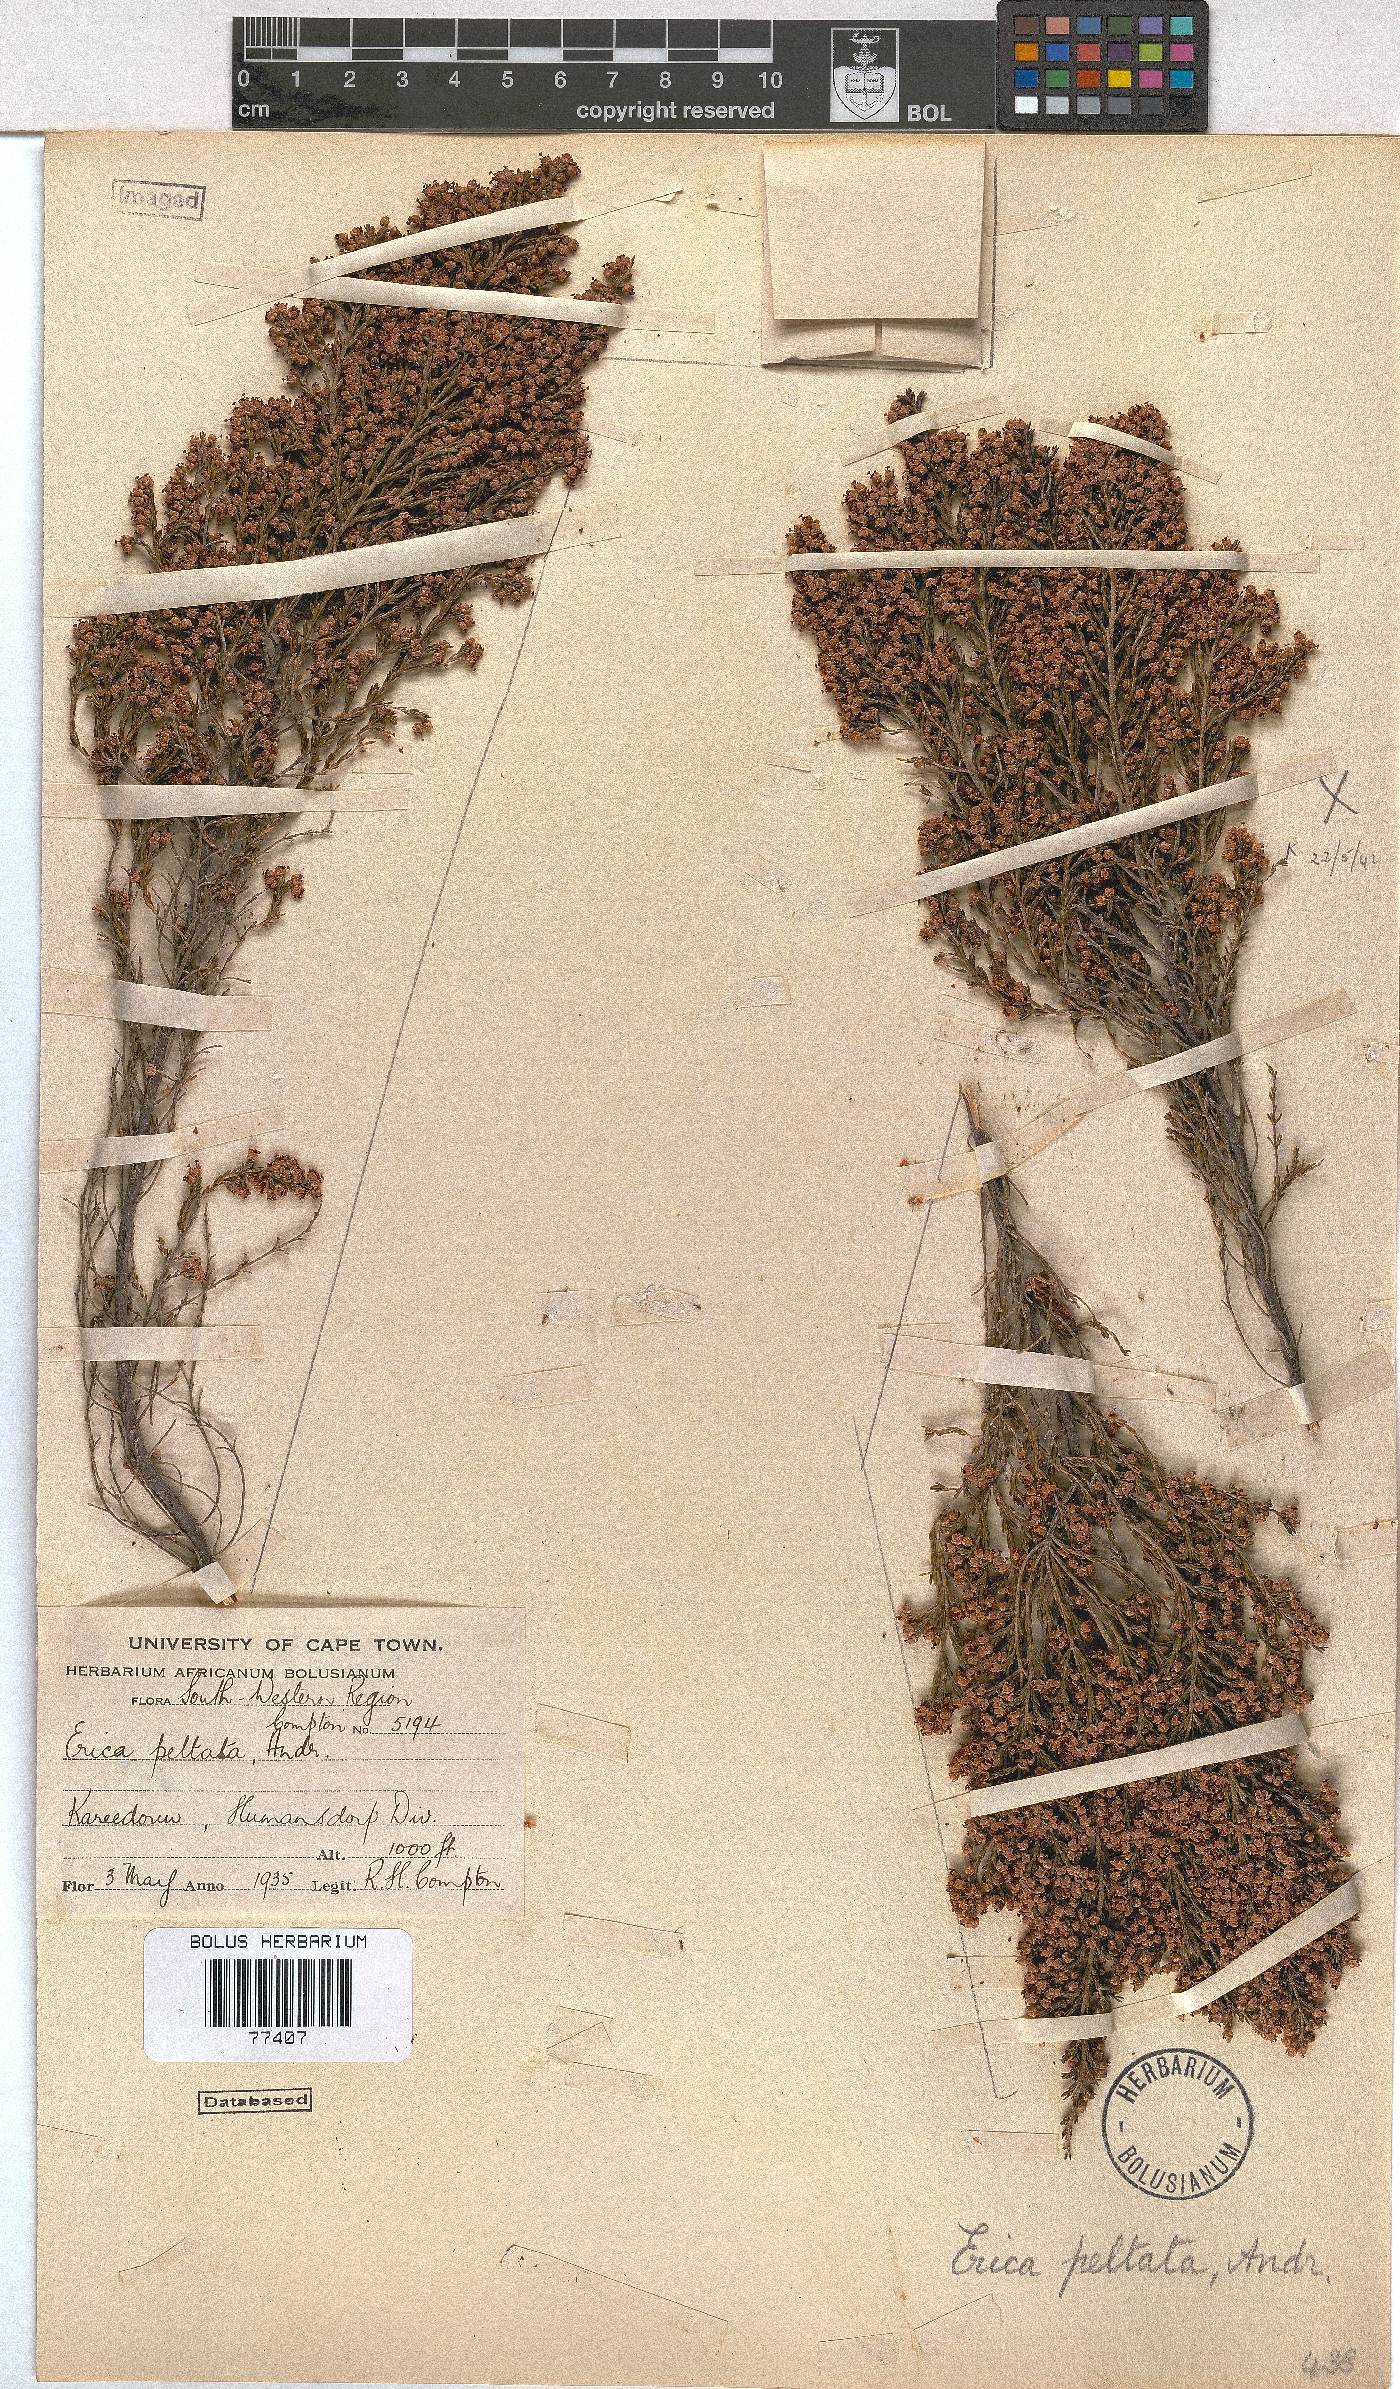 0 1 2 3 4 5 6 7 8 9 10
cm copyright reserved BOL
Imaged
X
K 22/5/42
UNIVERSITY OF CAPE TOWN.
HERBARIUM AFRICANUM BOLUSIANUM
FLORA South-Western Region
Compton No. 5194
Erica peltata, Andr.
Kareedouw, Humansdorp Div.
Alt. 1000 ft.
Flor 3 May Anno 1935 Legit. R.H. Compton
BOLUS HERBARIUM
77407
Databased
HERBARIUM
BOLUSIANUM
Erica peltata, Andr.
438